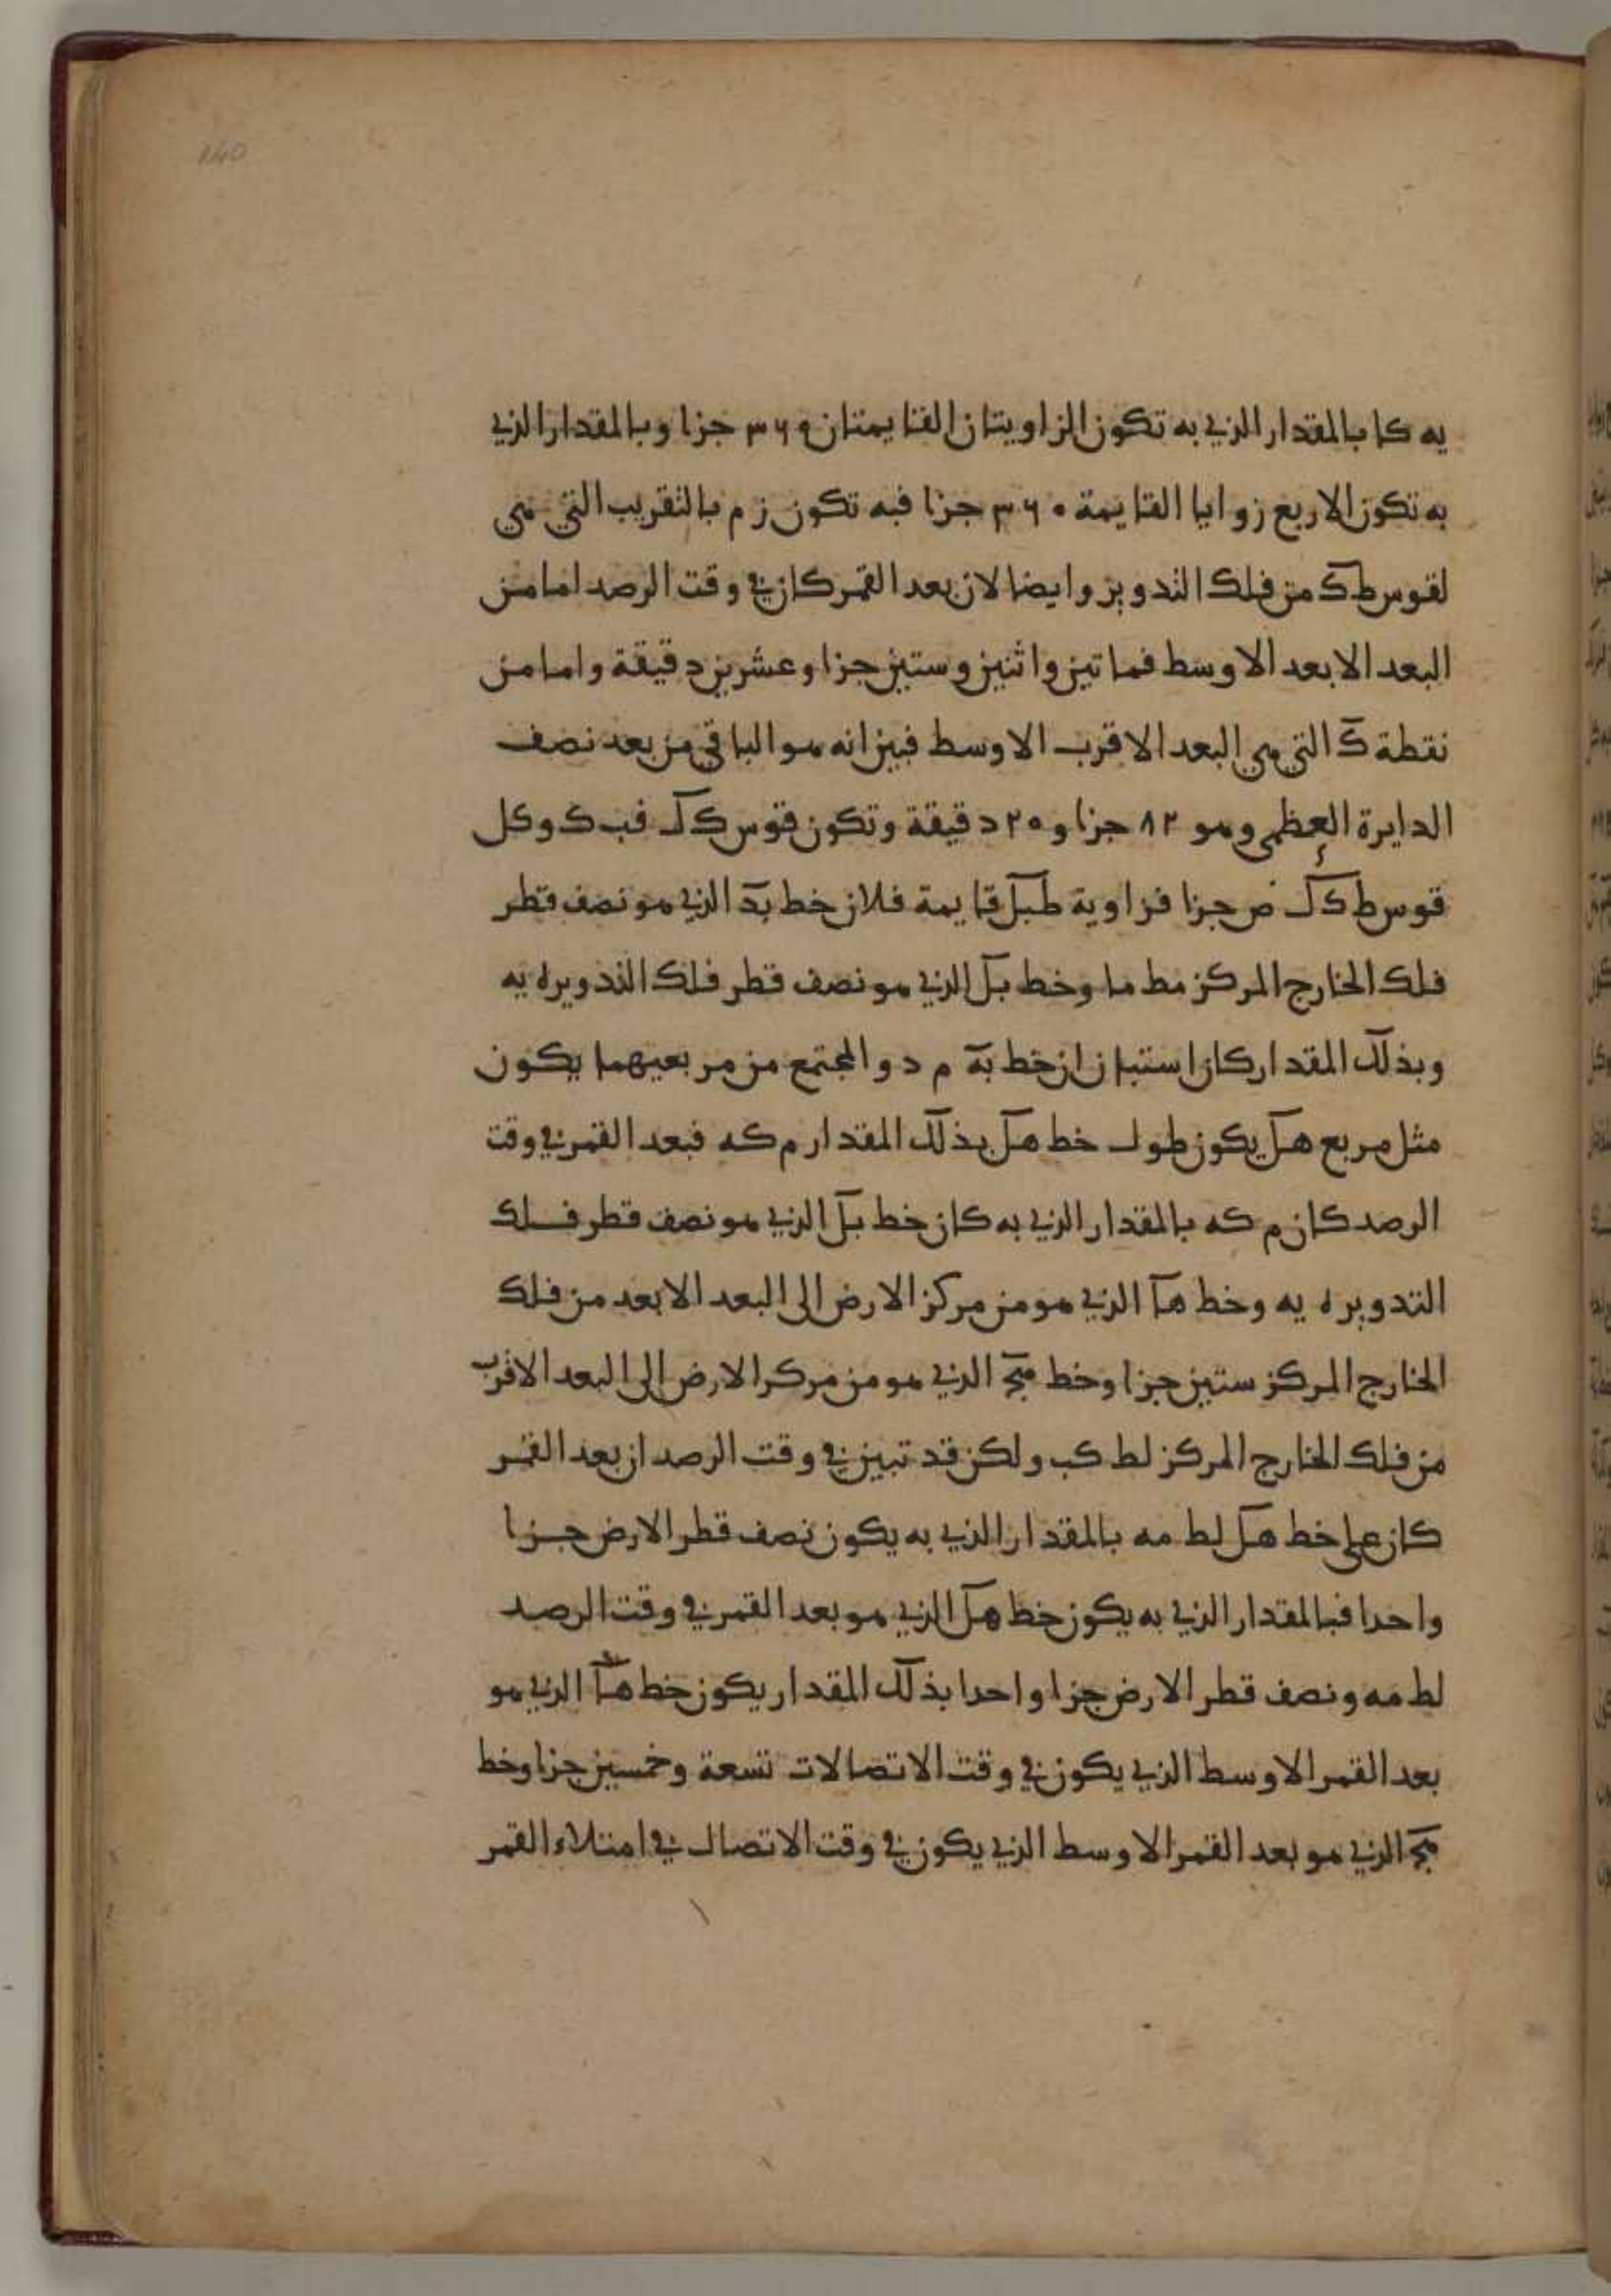 140
يه كا بالمقدار الذي به تكون الزاويتان القايمتان ٣٦٠ جزا وبالمقدار الذي
به تكون الاربع زوايا القايمة ٣٦٠ جزا فبه تكون ز م بالتقريب التي هي
لقوس طك من فلك التدوير وايضا لان بعد القمر كان في وقت الرصد اما من
البعد الابعد الاوسط فماتين واثنين وستين جزا وعشرين دقيقة واما من
نقطة ك التي هي البعد الاقرب الاوسط فبين انه هو الباقي من بعد نصف
الدايرة العظمى وهو ٨٢ جزا و ٢٠ دقيقة وتكون قوس كل فب ك وكل
قوس طكل ص جزا فزاوية طبل قايمة فلان خط بد الذي هو نصف قطر
فلك الخارج المركز مط ما وخط بل الذي هو نصف قطر فلك التدوير ه يه
وبذلك المقدار كان استبان ان خط به م د والمجتمع من مربعيهما يكون
مثل مربع هل يكون طول خط هل بذلك المقدار م كه فبعد القمر في وقت
الرصد كان م كه بالمقدار الذي به كان خط بل الذي هو نصف قطر فلك
التدوير ه يه وخط ها الذي هو من مركز الارض الى البعد الابعد من فلك
الخارج المركز ستين جزا وخط هج الذي هو من مركز الارض الى البعد الاقرب
من فلك الخارج المركز لط كب ولكن قد تبين في وقت الرصد ان بعد القمر
كان على خط هل لط مه بالمقدار الذي به يكون نصف قطر الارض جزا
واحدا فبالمقدار الذي به يكون خط هل الذي هو بعد القمر في وقت الرصد
لط مه ونصف قطر الارض جزا واحدا بذلك المقدار يكون خط ها الذي هو
بعد القمر الاوسط الذي يكون في وقت الاتصالات تسعة وخمسين جزا وخط
هج الذي هو بعد القمر الاوسط الذي يكون في وقت الاتصال في امتلاء القمر